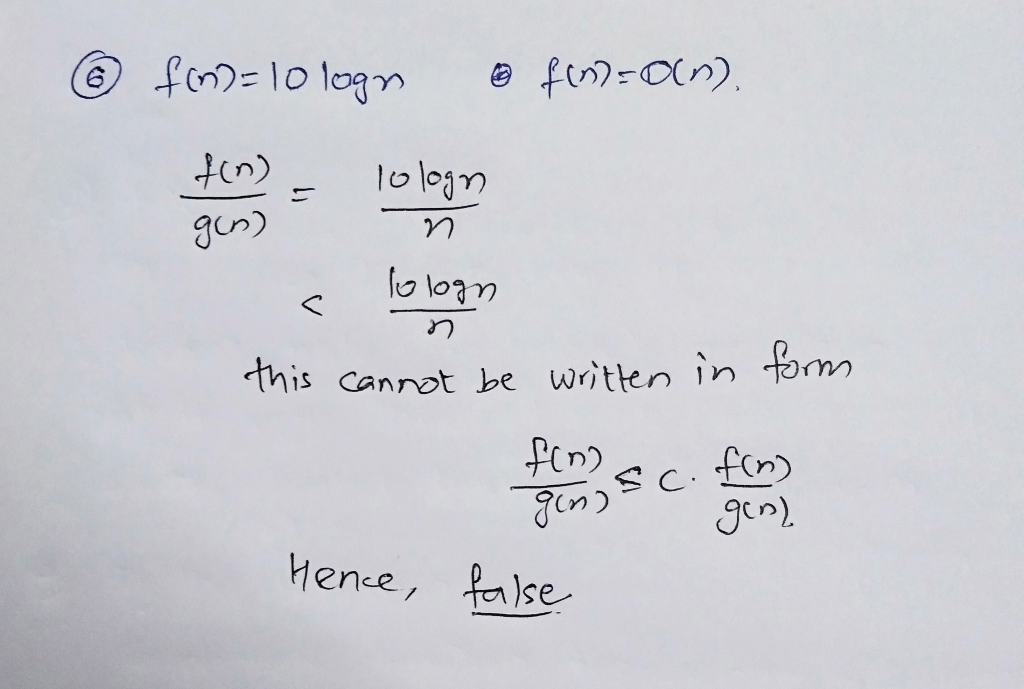 ⑥ f(n)=10 logn f(n)=O(n).
f(n)/g(n) = 10 logn/n
< 10 logn/n
this cannot be written in form
f(n)/g(n) ≤ c. f(n)/g(n)
Hence, false